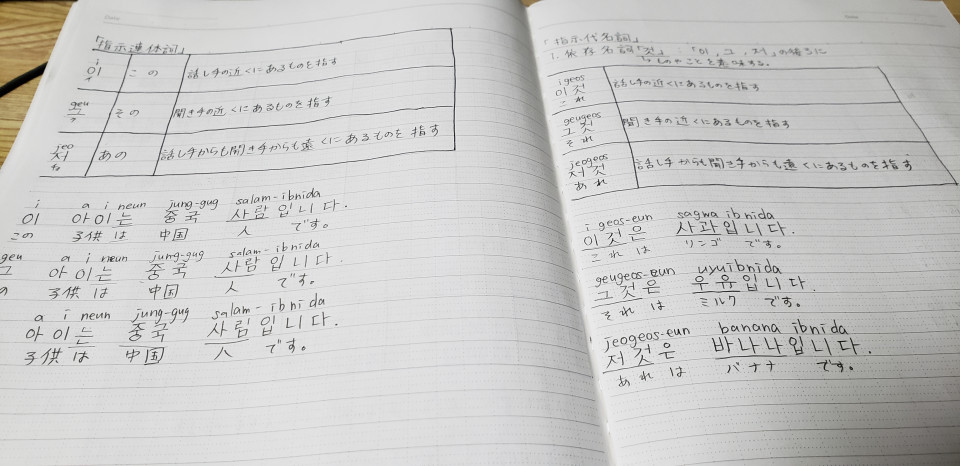 「指示連体詞」
i
이 この 話し手の近くにあるものを指す
イ
geu
그 その 聞き手の近くにあるものを指す
jeo
저 あの 話し手からも聞き手からも遠くにあるものを指す
i a i neun jung-gug salam-ibnida
이 아이는 중국 사람입니다.
この 子供は 中国 人 です。
geu a i neun jung-gug salam-ibnida
그 아이는 중국 사람입니다.
の 子供は 中国 人 です。
a i neun jung-gug salam-ibnida
아이는 중국 사림입니다.
子供は 中国 人 です。
「指示代名詞」
1. 依存名詞「것」:「이, 그, 저」の後ろに
ものやことを意味する。
igeos
이것 話し手の近くにあるものを指す
これ
geugeos
그것 聞き手の近くにあるものを指す
それ
jeogeos
저것 話し手からも聞き手からも遠くにあるものを指す
あれ
igeos-eun sagwa ibnida
이것은 사과입니다.
これは リンゴ です。
geugeos-eun uyuibnida
그것은 우유입니다.
それは ミルク です。
jeogeos-eun banana ibnida
저것은 바나나입니다.
あれは バナナ です。